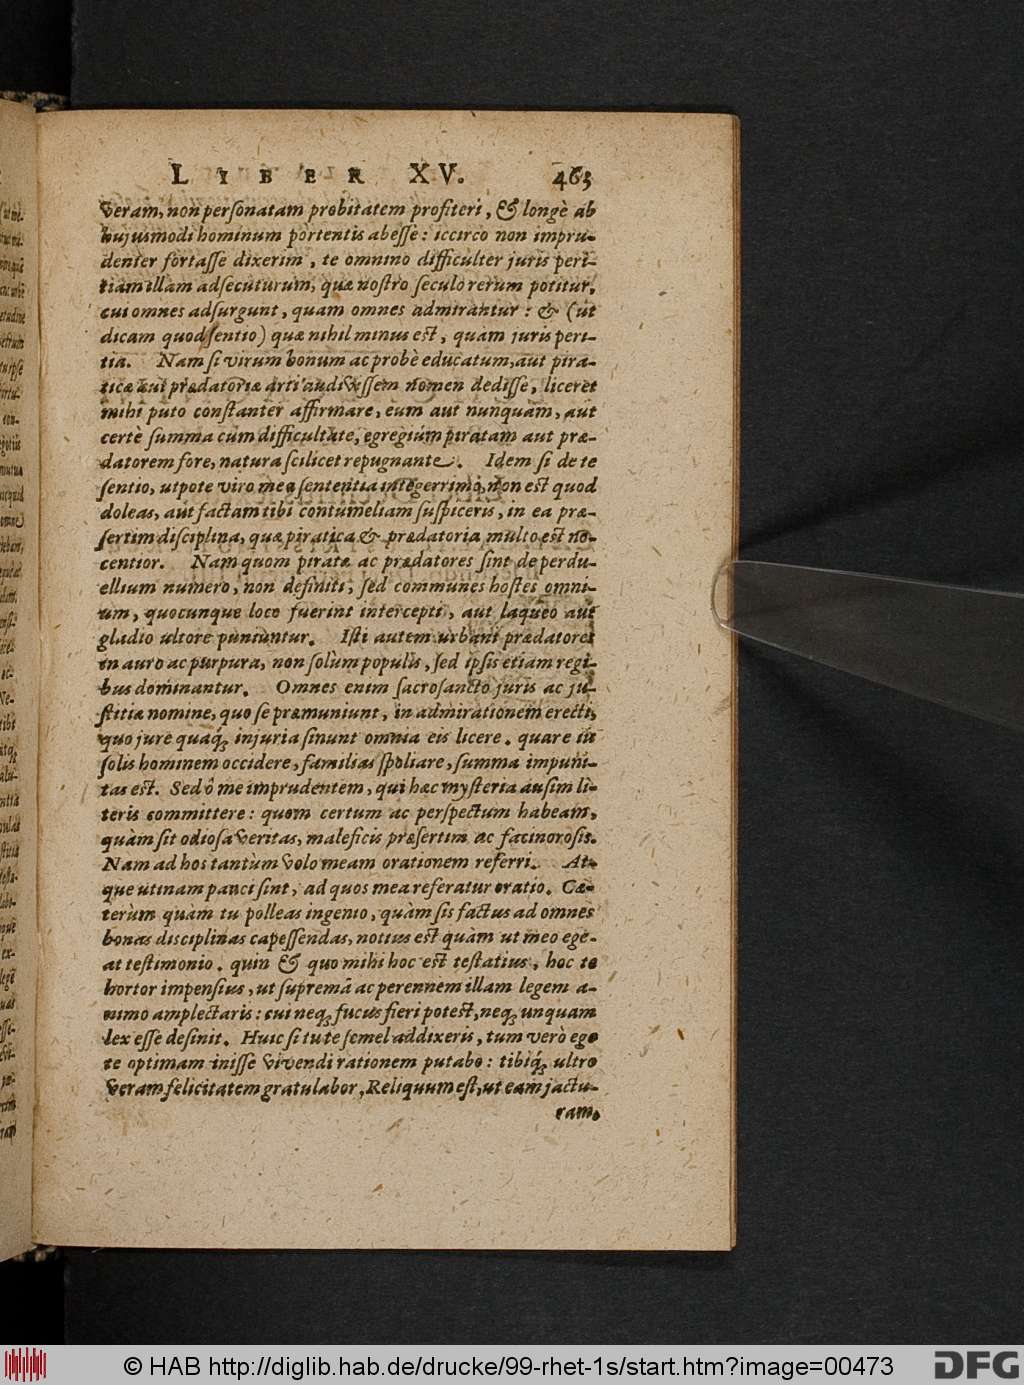 LIBER XV. 465
veram, non personatam probitatem profiteri, & longè ab
hujusmodi hominum portentis abesse: iccirco non impru-
denter fortasse dixerim, te omnino difficulter juris peri-
tiam illam adsecuturum, quæ nostro seculo rerum potitur,
cui omnes adsurgunt, quam omnes admirantur: & (ut
dicam quod sentio) quæ nihil minus est, quàm juris peri-
tia. Nam si virum bonum ac probè educatum, aut pira-
ticæ aut prædatoriæ arti audivissem nomen dedisse, liceret
mihi puto constanter affirmare, eum aut nunquàm, aut
certè summa cum difficultate, egregium piratam aut præ-
datorem fore, natura scilicet repugnante. Idem si de te
sentio, utpote viro mea sententia integerrimo, non est quod
doleas, aut factam tibi contumeliam suspiceris, in ea præ-
sertim disciplina, quæ piratica & prædatoria multo est no-
centior. Nam quom piratæ ac prædatores sint de perdu-
ellium numero, non definiti, sed communes hostes omni-
um, quocunque loco fuerint intercepti, aut laqueo aut
gladio ultore puniuntur. Isti autem urbani prædatores
in auro ac purpura, non solùm populis, sed ipsis etiam regi-
bus dominantur. Omnes enim sacrosancto juris ac ju-
stitiæ nomine, quo se præmuniunt, in admirationem erecti,
quo jure quaq; injuria sinunt omnia eis licere. quare iis
solis hominem occidere, familias spoliare, summa impuni-
tas est. Sed ô me imprudentem, qui hæc mysteria ausim li-
teris committere: quom certum ac perspectum habeam,
quàm sit odiosa veritas, maleficis præsertim ac facinorosis.
Nam ad hos tantùm volo meam orationem referri. At-
que utinam pauci sint, ad quos mea referatur oratio. Cæ-
terùm quàm tu polleas ingenio, quàm sis factus ad omnes
bonas disciplinas capessendas, notius est quàm ut meo ege-
at testimonio. quin & quo mihi hoc est testatius, hoc te
hortor impensius, ut supremā ac perennem illam legem a-
nimo amplectaris: cui neq; fucus fieri potest, neq; unquam
lex esse desinit. Huic si tu te semel addixeris, tum verò ego
te optimam inisse vivendi rationem putabo: tibiq; ultro
veram felicitatem gratulabor, Reliquum est, ut eam jactu-
ram,
© HAB http://diglib.hab.de/drucke/99-rhet-1s/start.htm?image=00473
DFG